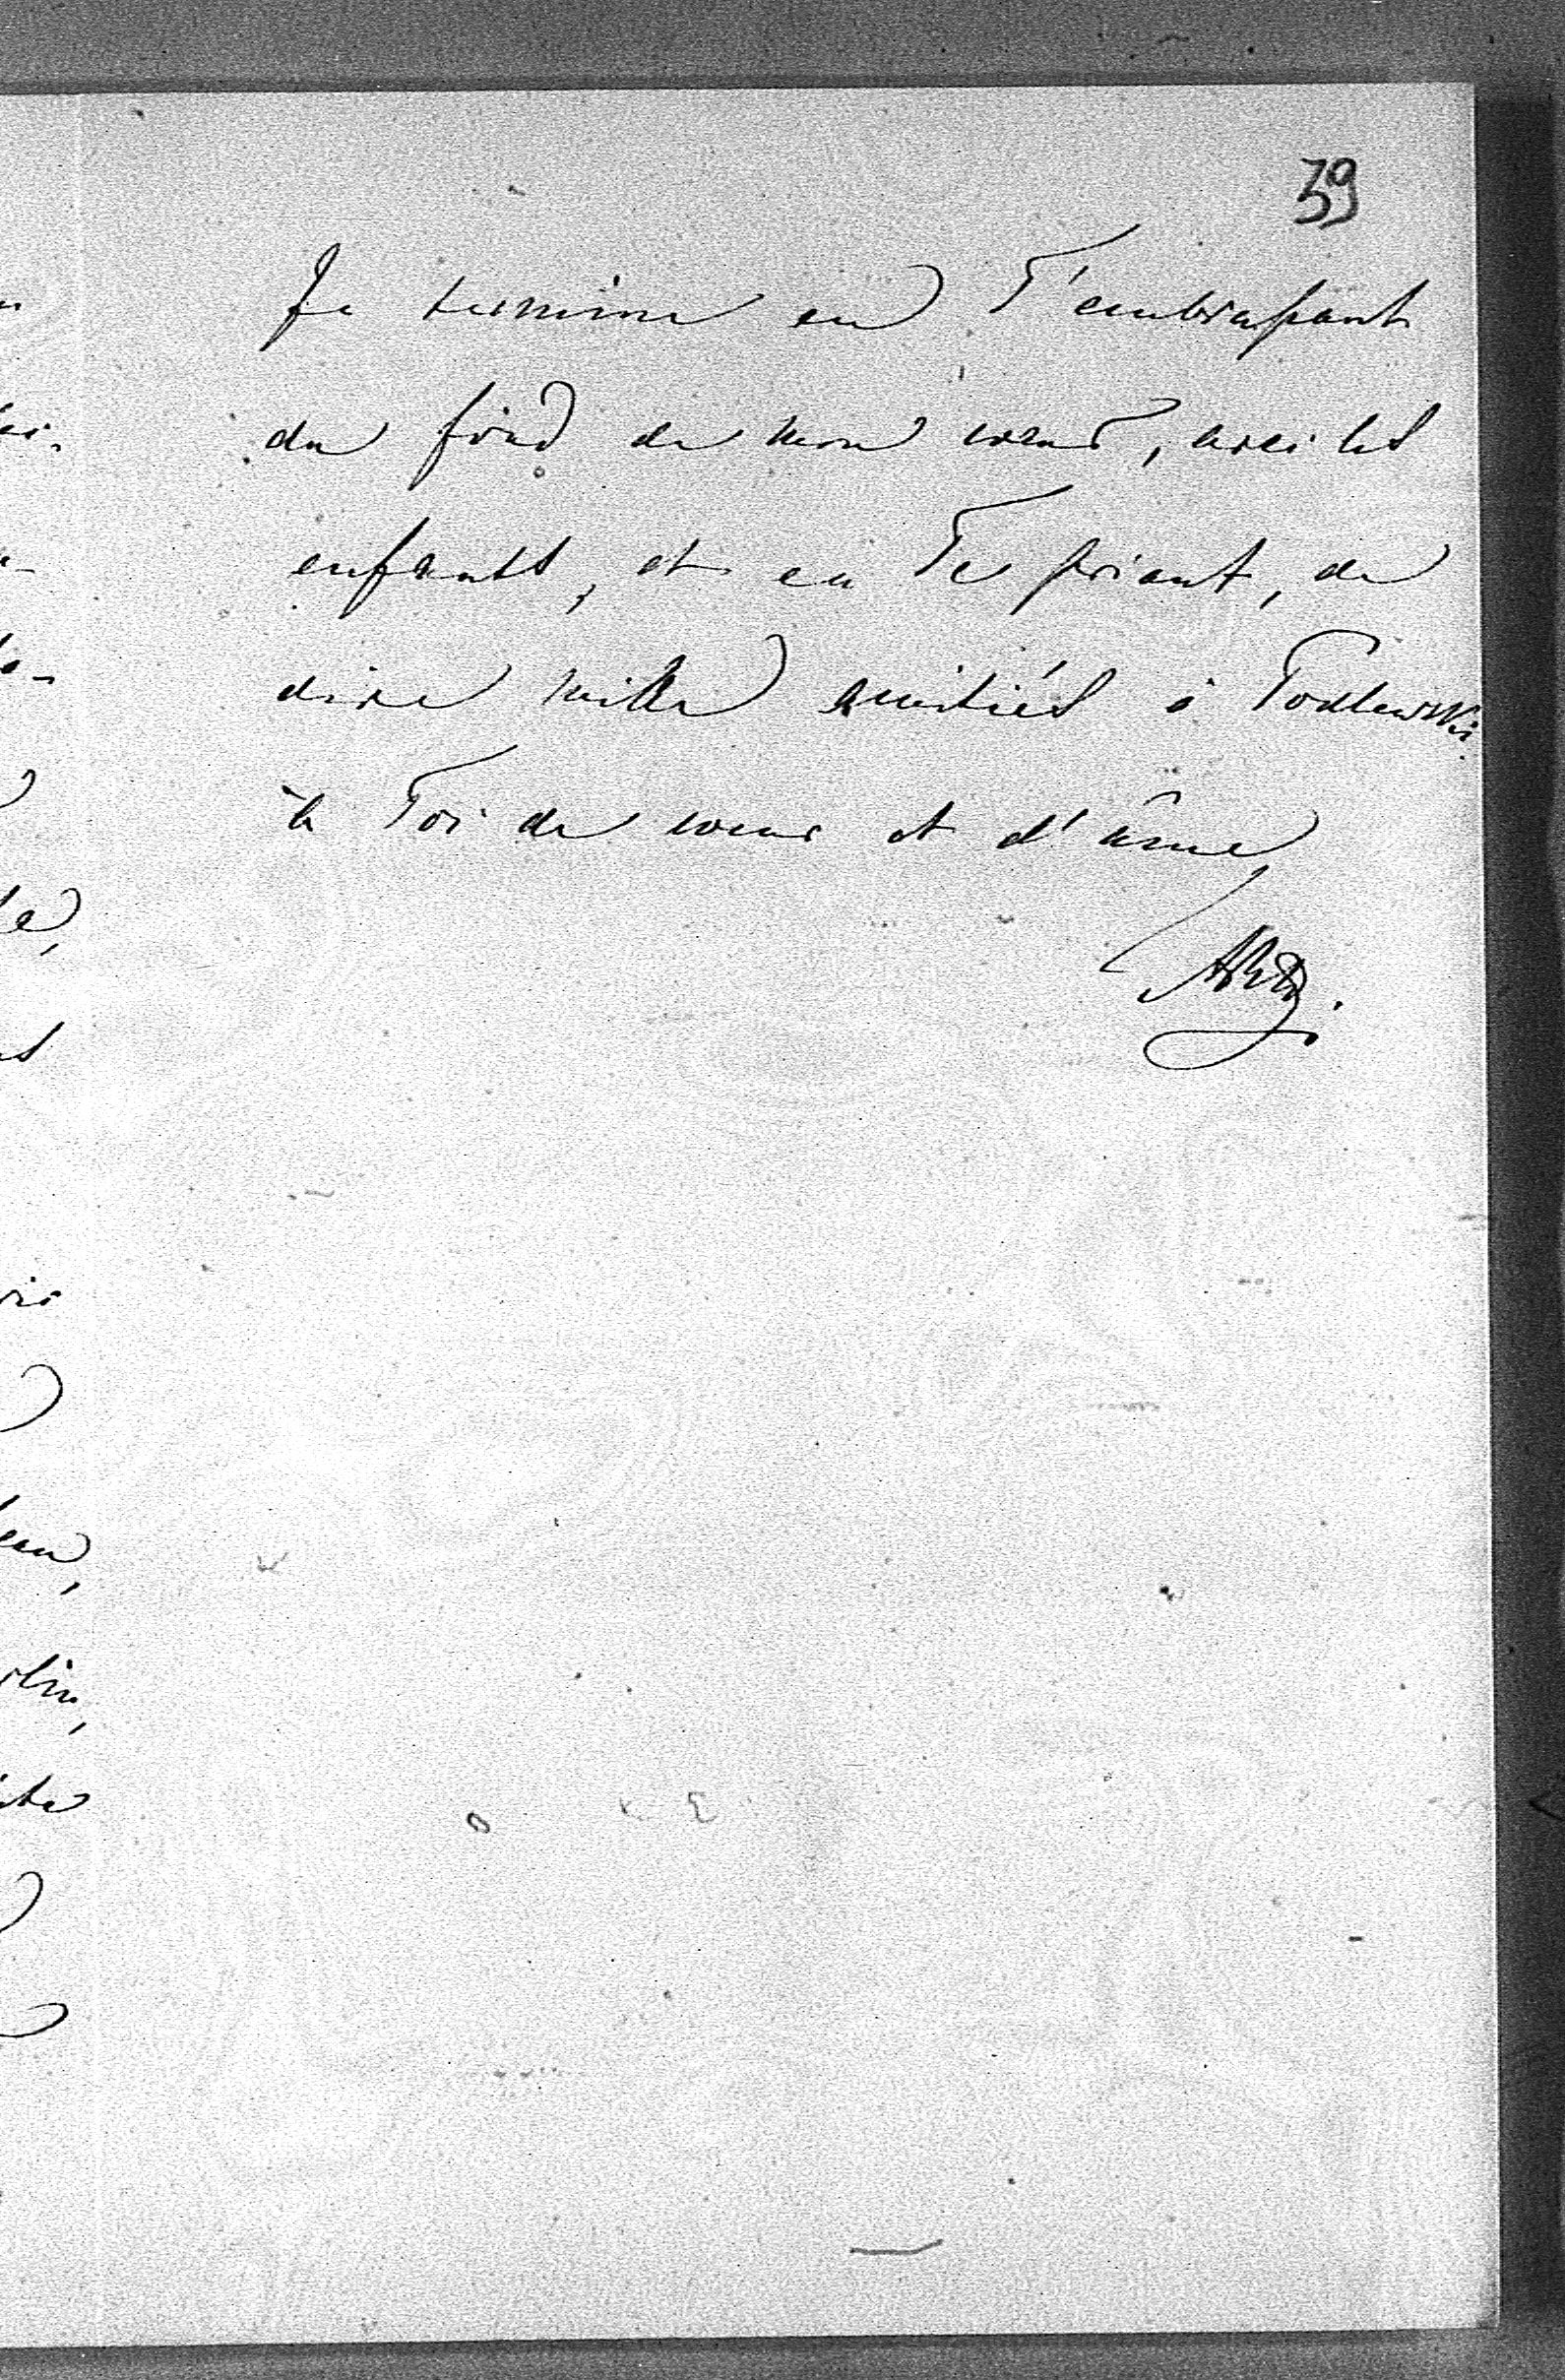 39
Je termine en T'embrassant
du fond de mon cœur, avec les
enfants, et en Te priant, de
dire mille amitiés à Podlewski.
à Toi de cœur et d'âme